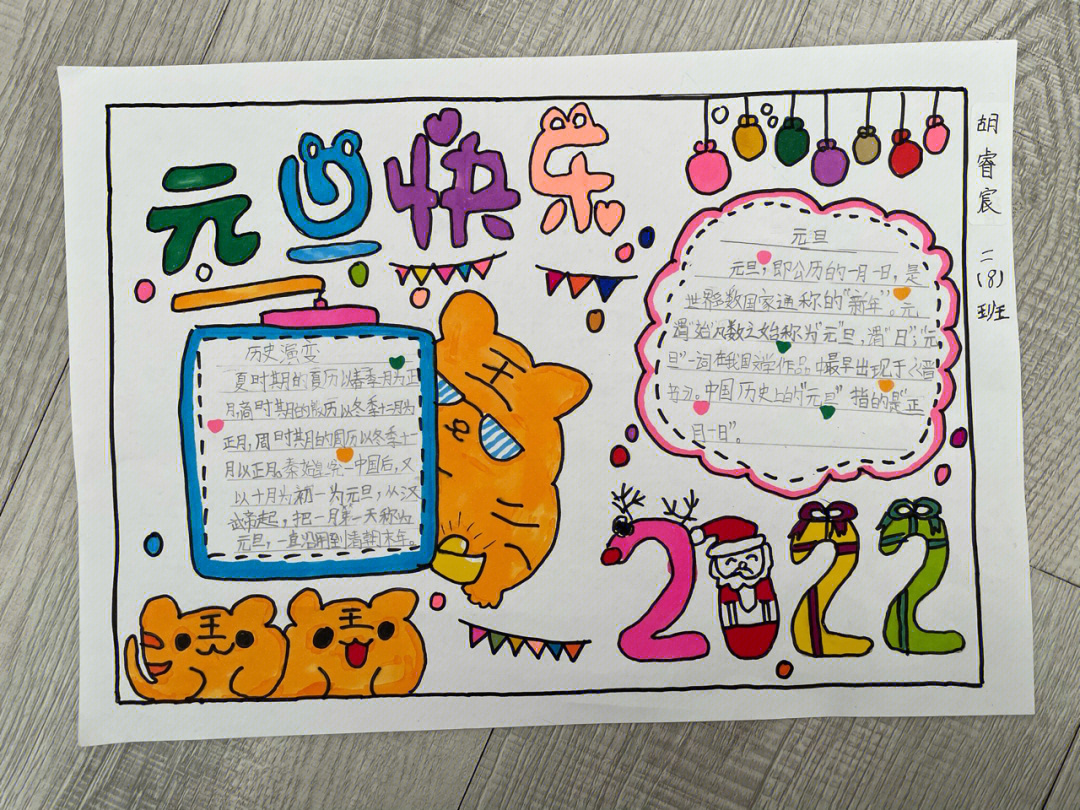 元旦快乐
历史演变
夏时期的夏历以春季一月为正
月,商时期的殷历以冬季十二月为
正月,周时期的周历以冬季十一
月以正月。秦始皇统一中国后,又
以十月为初一为元旦,从汉
武帝起,把一月第一天称为
元旦,一直沿用到清朝末年。
元旦
元旦,即公历的一月一日,是
世界多数国家通称的“新年”。元
谓“始凡数之始称为“元旦,谓“日”;“元
旦”一词在我国文学作品中最早出现于《晋
书》。中国历史上的“元旦”指的是“正
月一日”。
2022
胡睿宸 二(8)班
王
王
王